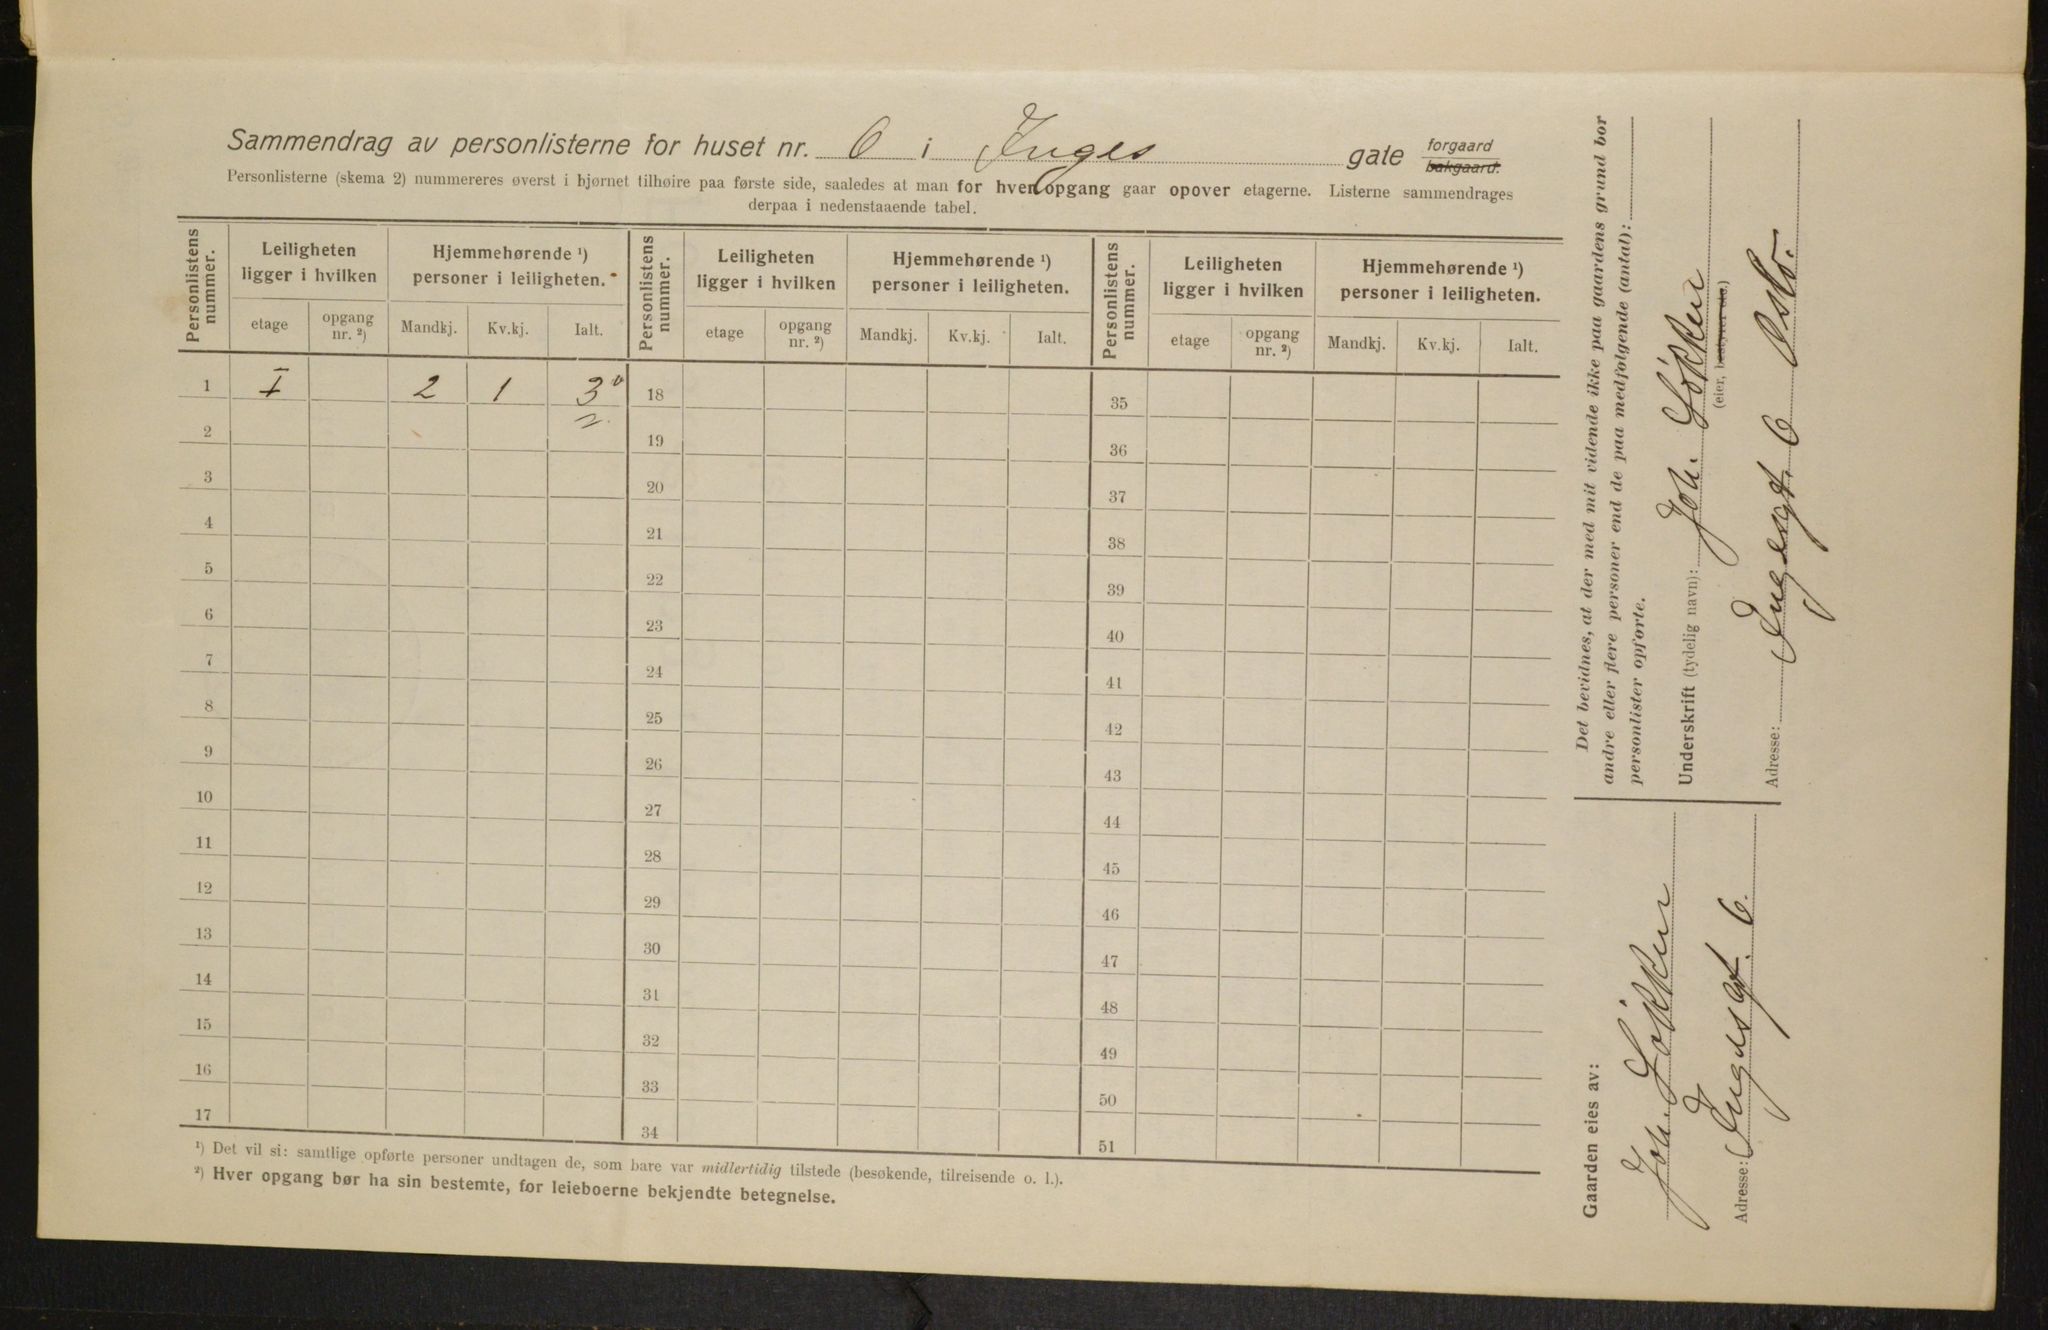 Sammendrag av personlisterne for huset nr. 6 i Inges gate forgaard bakgaard.
Personlisterne (skema 2) nummereres øverst i hjørnet tilhøire paa første side, saaledes at man for hver opgang gaar opover etagerne. Listerne sammendrages
derpaa i nedenstaaende tabel.
Personlistens nummer. | Leiligheten ligger i hvilken | Hjemmehørende ¹) personer i leiligheten. | Personlistens nummer. | Leiligheten ligger i hvilken | Hjemmehørende ¹) personer i leiligheten. | Personlistens nummer. | Leiligheten ligger i hvilken | Hjemmehørende ¹) personer i leiligheten.
etage | opgang nr. ²) | Mandkj. | Kv.kj. | Ialt. | etage | opgang nr. ²) | Mandkj. | Kv.kj. | Ialt. | etage | opgang nr. ²) | Mandkj. | Kv.kj. | Ialt.
1 I 2 1 3 18 35
2 19 36
3 20 37
4 21 38
5 22 39
6 23 40
7 24 41
8 25 42
9 26 43
10 27 44
11 28 45
12 29 46
13 30 47
14 31 48
15 32 49
16 33 50
17 34 51
¹) Det vil si: samtlige opførte personer undtagen de, som bare var midlertidig tilstede (besøkende, tilreisende o. l.).
²) Hver opgang bør ha sin bestemte, for leieboerne bekjendte betegnelse.
Det bevidnes, at der med mit vidende ikke paa gaardens grund bor
andre eller flere personer end de paa medfølgende (antal):
personlister opførte.
Underskrift (tydelig navn): Joh. Løkken
(eier, bestyrer etc.)
Adresse: Ingesgt. 6 Oslo.
Gaarden eies av:
Joh. Løkken
Adresse: Ingesgt. 6.